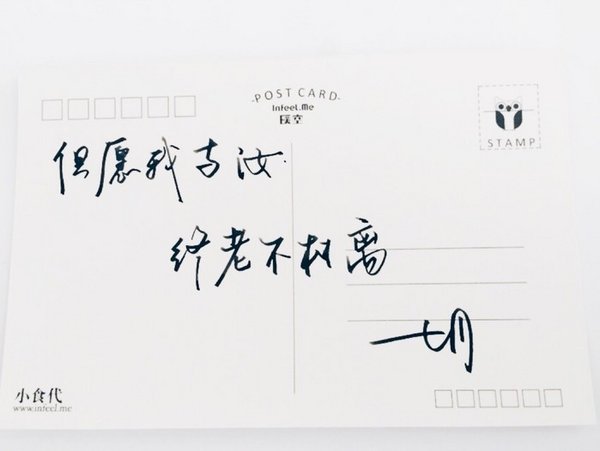 POST CARD
Infeel.Me
STAMP
但愿我与汝
终老不相离
七月
小食代
www.infeel.me